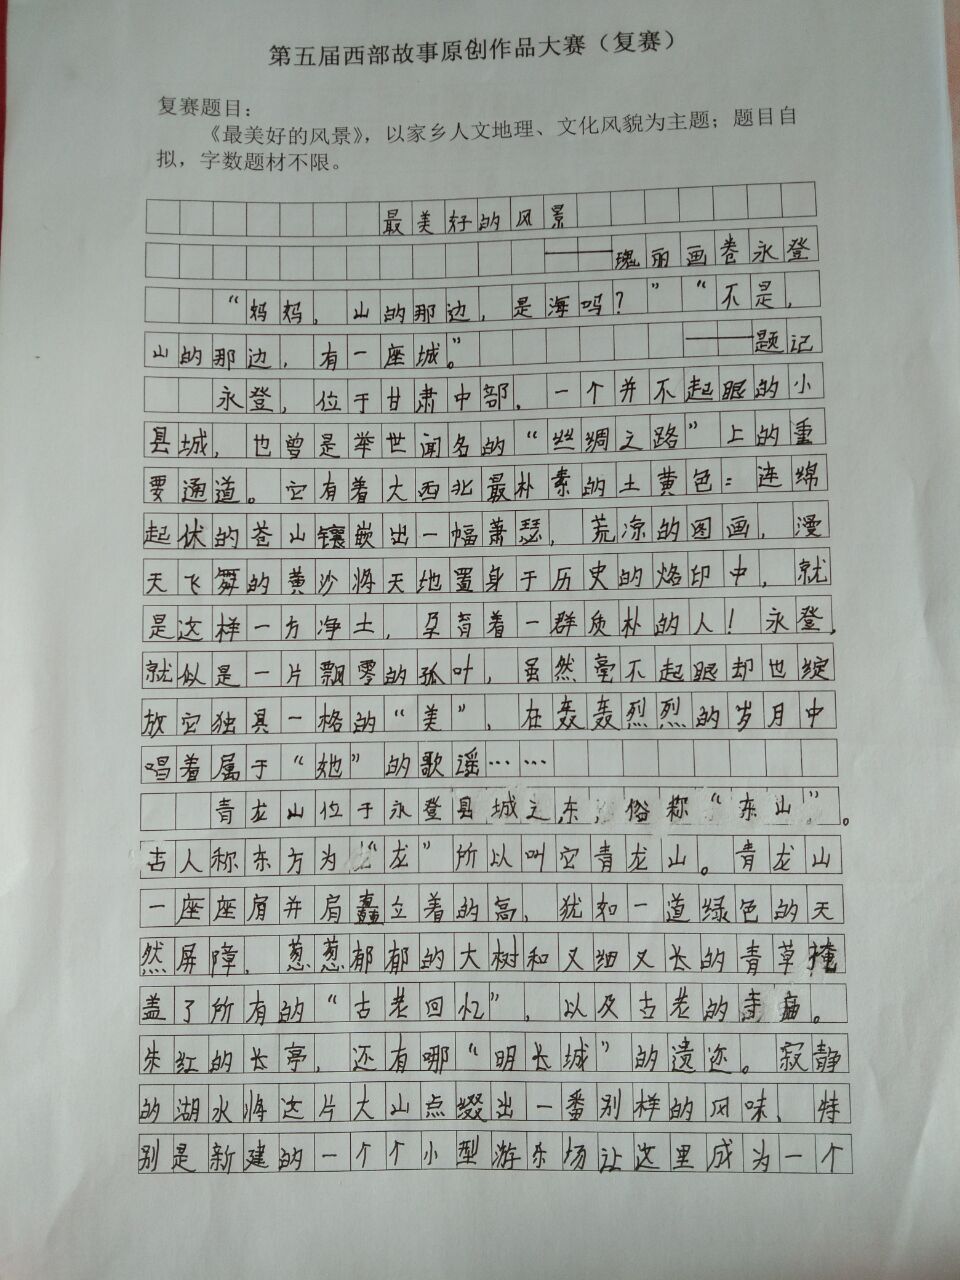 第五届西部故事原创作品大赛（复赛）
复赛题目：
《最美好的风景》，以家乡人文地理、文化风貌为主题；题目自
拟，字数题材不限。
最美好的风景
——瑰丽画卷永登
“妈妈，山的那边，是海吗？”“不是，
山的那边，有一座城。”——题记
永登，位于甘肃中部，一个并不起眼的小
县城，也曾是举世闻名的“丝绸之路”上的重
要通道。它有着大西北最朴素的土黄色：连绵
起伏的苍山镶嵌出一幅萧瑟，荒凉的图画，漫
天飞舞的黄沙将天地置身于历史的烙印中，就
是这样一方净土，孕育着一群质朴的人！永登，
就似是一片飘零的孤叶，虽然毫不起眼却也绽
放它独具一格的“美”，在轰轰烈烈的岁月中
唱着属于“她”的歌谣……
青龙山位于永登县城之东，俗称“东山”。
古人称东方为“龙”所以叫它青龙山。青龙山
一座座肩并肩矗立着的高，犹如一道绿色的天
然屏障，葱葱郁郁的大树和又细又长的青草掩
盖了所有的“古老回忆”，以及古老的寺庙。
朱红的长亭，还有哪“明长城”的遗迹。寂静
的湖水将这片大山点缀出一番别样的风味，特
别是新建的一个个小型游乐场让这里成为一个